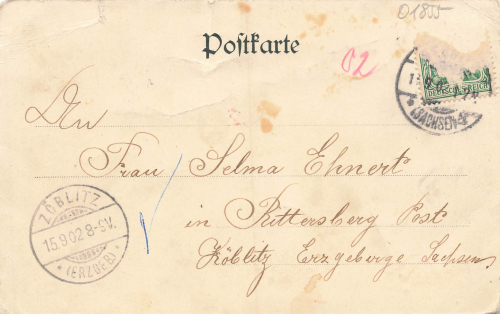 01855
Postkarte
02
DEUTSCHES REICH
(SACHSEN)
An
Frau Selma Ehnert
in Rittersberg Post
Zöblitz Erzgeberge Sachsen
ZÖBLITZ
15.9.02 8-9V.
* (ERZGEB.) *